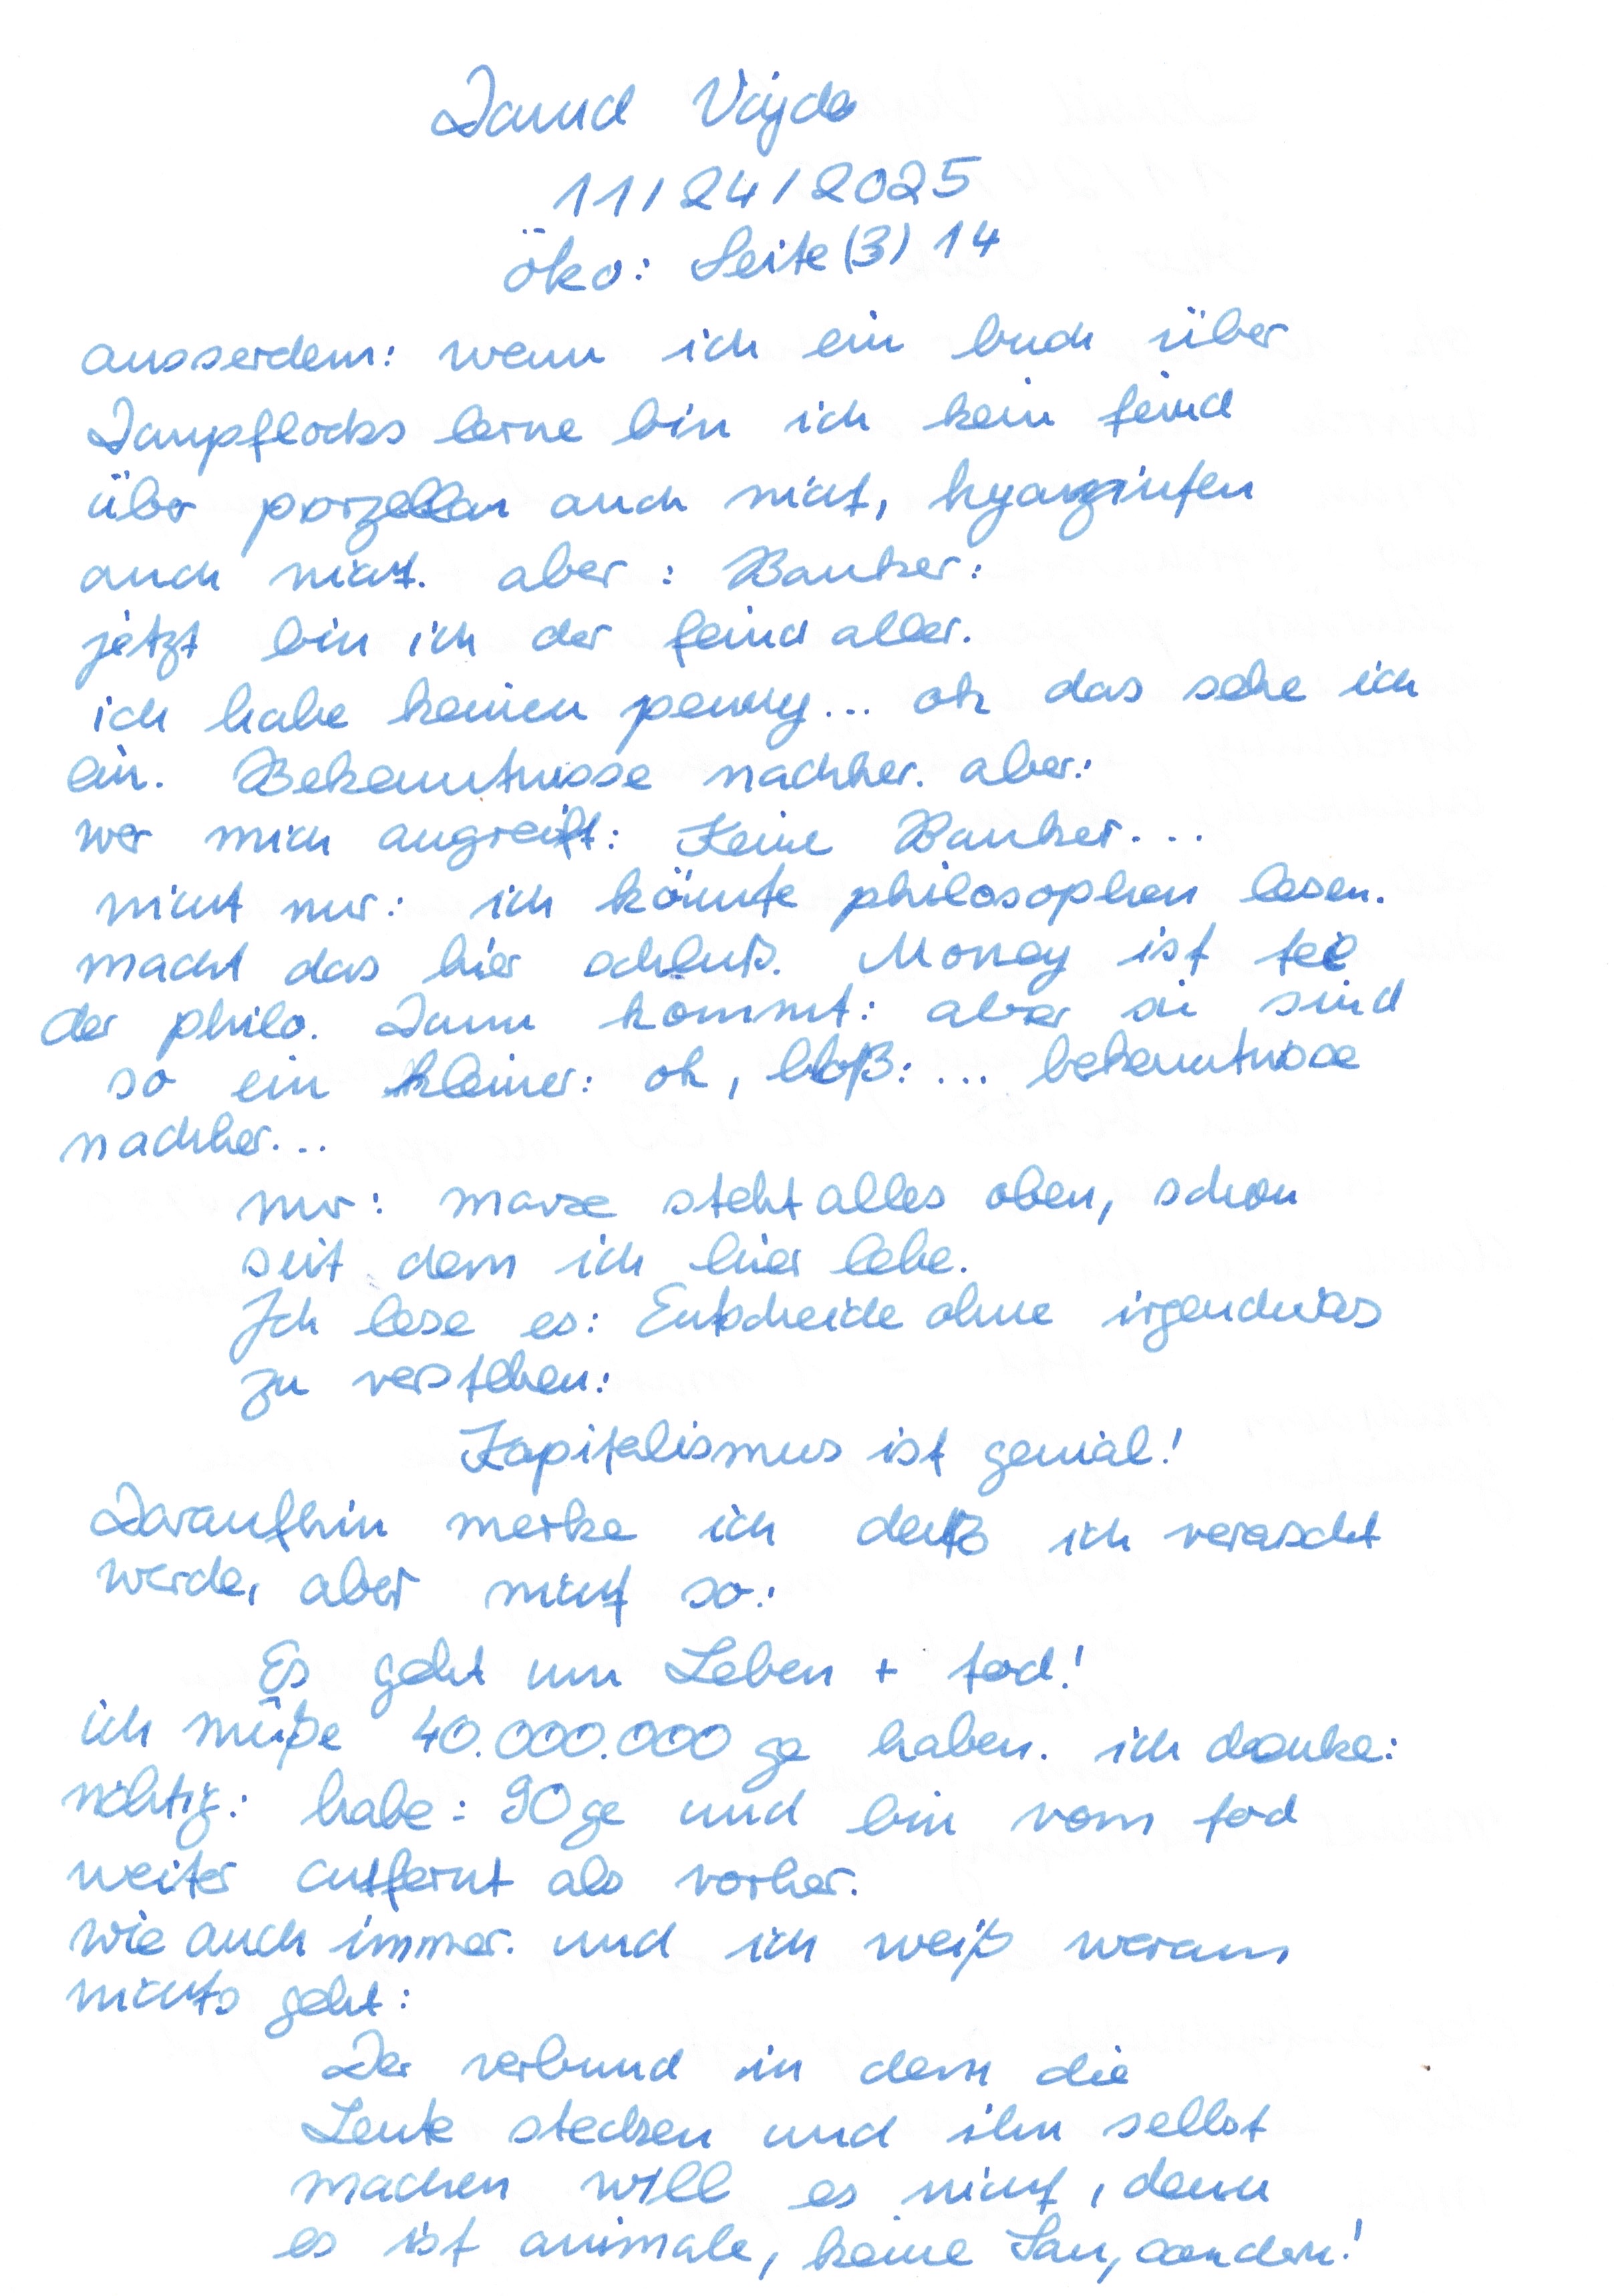 David Vajda
11/24/2025
öko: Seite (3) 14
ausserdem: wenn ich ein buch über
Dampfloks lerne bin ich kein feind
über porzellan auch nicht, hyanzinten
auch nicht. aber: Banker:
jetzt bin ich der feind aller.
ich habe keinen penny... ok das sehe ich
ein. Bekenntnisse nachher. aber:
wer mich angreift: Keine Banker...
nicht nur: ich könnte philosophen lesen.
macht das hier schluß. Money ist teil
der philo. Dann kommt: aber sie sind
so ein kleiner: ok, bloß: ... bekenntnisse
nachher...
nur: marx steht alles oben, schon
seit dem ich hier lebe.
Ich lese es: Entscheide ohne irgendwas
zu verstehen:
Kapitalismus ist genial!
Daraufhin merke ich daß ich verascht
werde, aber nicht so:
Es geht um Leben + tod!
ich müße 40.000.000 ge haben. ich danke:
richtig: habe: 90ge und bin vom tod
weiter entfernt als vorher.
wie auch immer. und ich weiß weraus
nichts geht:
Der verbund in dem die
Leute stecken und ihn selbst
machen will es nicht, denn
es ist animale, keine Sau,